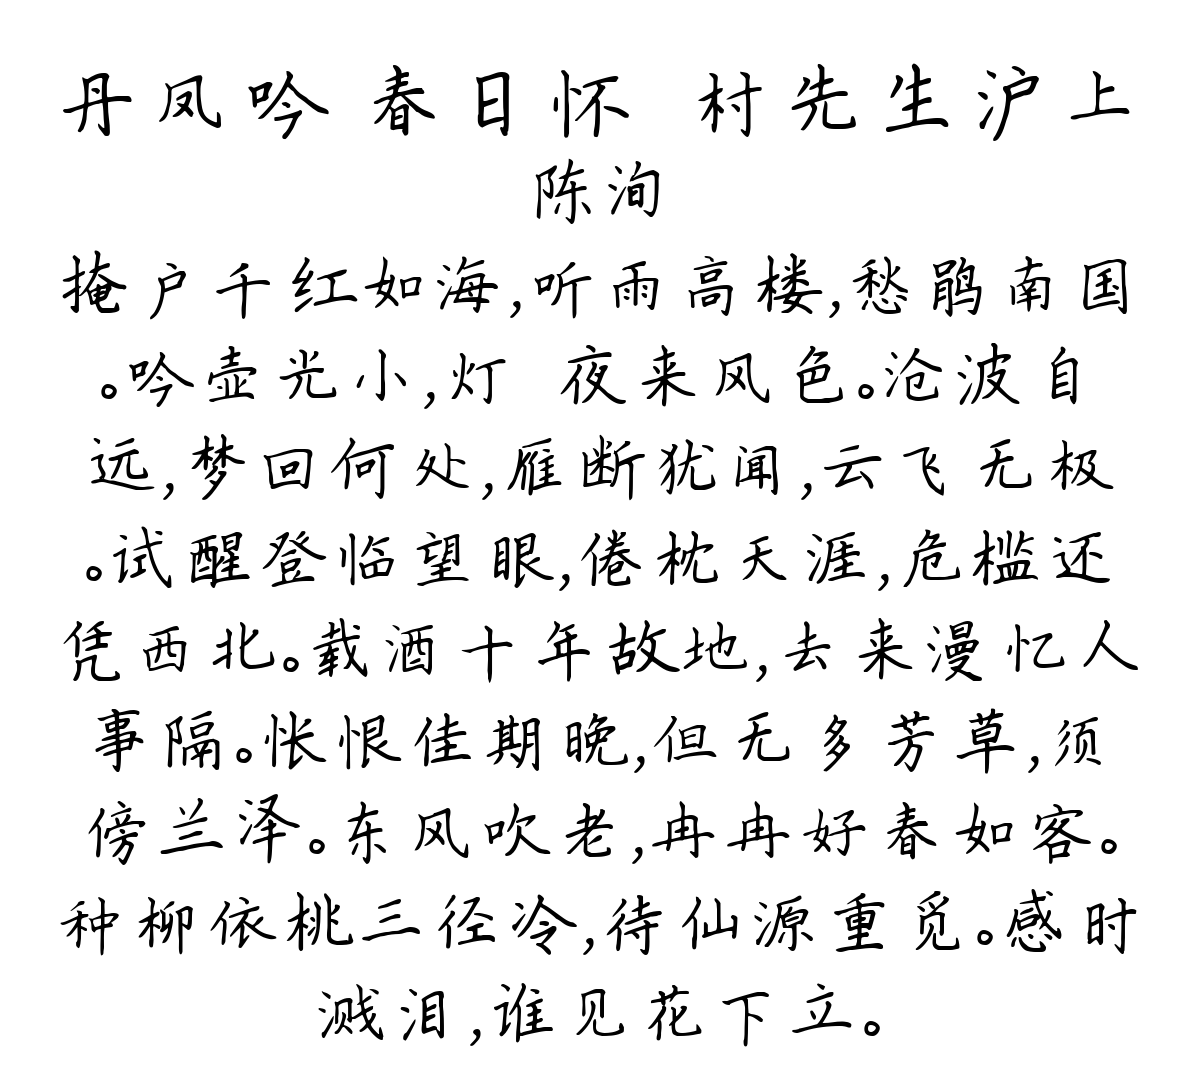 丹凤吟 春日怀 村先生沪上
陈洵
掩户千红如海,听雨高楼,愁鹃南国
。吟壶光小,灯 夜来风色。沧波自
远,梦回何处,雁断犹闻,云飞无极
。试醒登临望眼,倦枕天涯,危槛还
凭西北。载酒十年故地,去来漫忆人
事隔。怅恨佳期晚,但无多芳草,须
傍兰泽。东风吹老,冉冉好春如客。
种柳依桃三径冷,待仙源重觅。感时
溅泪,谁见花下立。